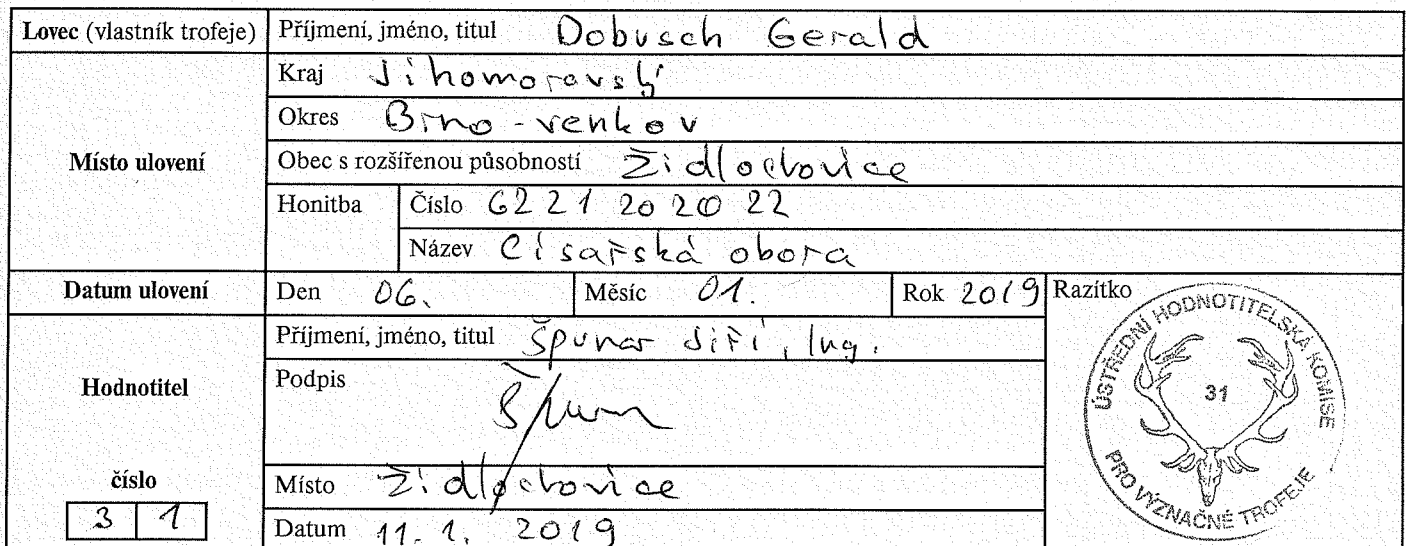 Lovec (vlastník trofeje) Příjmení, jméno, titul Dobusch Gerald
Místo ulovení
Kraj Jihomoravský
Okres Brno-venkov
Obec s rozšířenou působností Židlochovice
Honitba Číslo 6221202022
Název Císařská obora
Datum ulovení Den 06. Měsíc 01. Rok 2019 Razítko
Hodnotitel
Příjmení, jméno, titul Špunar Jiří, Ing.
Podpis
číslo
31
Místo Židlochovice
Datum 11. 1. 2019
ÚSTŘEDNÍ HODNOTITELSKÁ KOMISE
31
PRO VÝZNAČNÉ TROFEJE